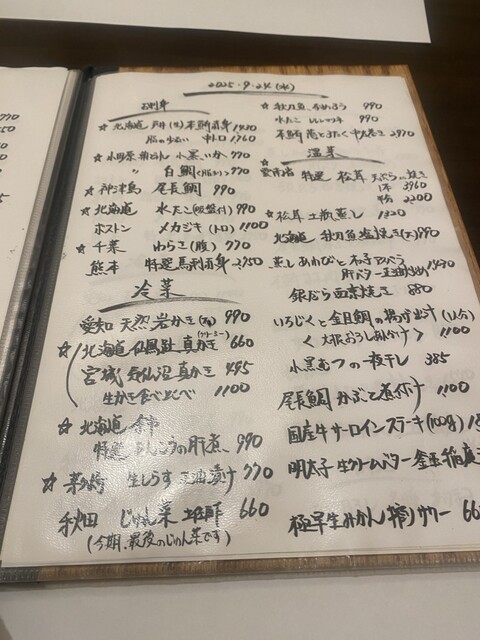 2025.9.24(水)
お刺身
☆北海道 戸井(生)本鮪赤身 1430
脂の少ない 中トロ 1760
☆小田原 朝どれ 小墨いか 770
〃 白鯛 770
☆神津島 尾長鯛 990
☆北海道 水たこ(吸盤付) 990
ボストン メカジキ(トロ) 1100
☆千葉 わらさ(腹) 770
熊本 特選馬刺赤身 2750
冷菜
愛知 天然岩かき 990
☆北海道 仙鳳趾 真かき(クリーミー) 660
宮城 気仙沼 真かき 495
生かき食べ比べ 1100
☆北海道 余市
特選 あんこうの肝煮 990
☆茅ヶ崎 生しらす 漬け 770
秋田 じゅん菜 660
(今期、最後のじゅん菜です)
☆秋刀魚 なめろう 990
水たこ 990
本鮪 2970
温菜
雲南省 特選 松茸 天ぷら or 焼き
1本 3960
2200
☆松茸土瓶蒸し 1320
北海道 秋刀魚塩焼き(大) 990
蒸しあわびと
肝バター 1430
銀だら西京焼き 880
いちじくと金目鯛の揚げ出汁
<大根おろしあんかけ> 1100
小黒むつの一夜干し 385
尾長鯛 かぶと煮付け 1100
国産牛サーロインステーキ(100g)
明太子生クリームバター 釜玉稲庭
極早生みかん搾りサワー 66